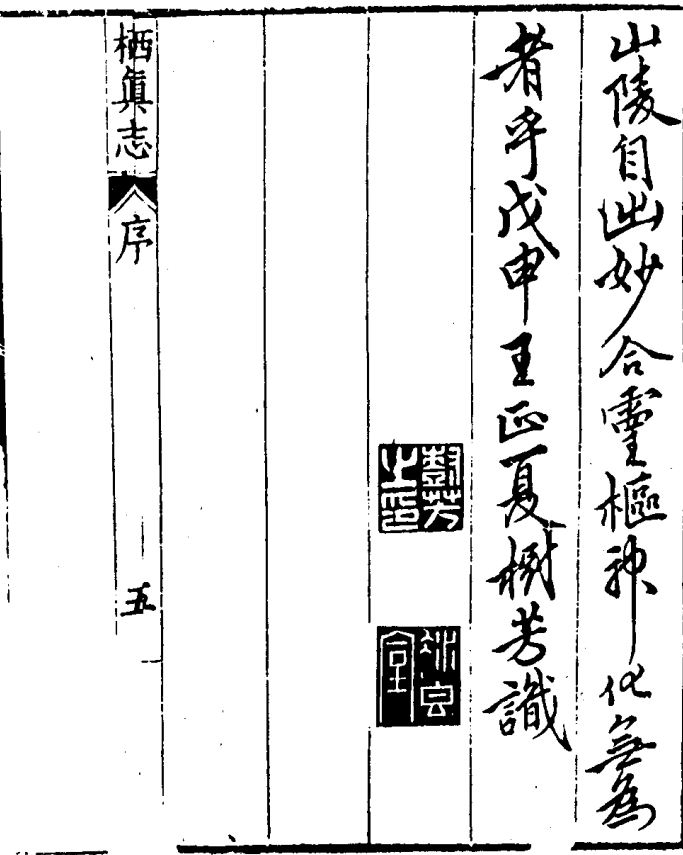 山陵自出妙合靈樞神化無為
者乎戊申王正夏樹芳識
樹芳
之印
栖眞志
序
五